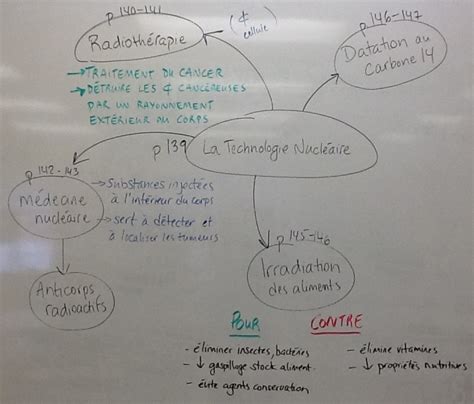 p 140-141
Radiothérapie
(¢
cellule)
→ TRAITEMENT DU CANCER
→ DÉTRUIRE LES ¢ CANCÉREUSES
PAR UN RAYONNEMENT
EXTÉRIEUR AU CORPS
p 146-147
Datation au
Carbone 14
p 139
La Technologie Nucléaire
p 142-143
Médecine
nucléaire
→ Substances injectées
à l'intérieur du corps
→ sert à détecter et
à localiser les tumeurs
Anticorps
radioactifs
p 145-146
Irradiation
des aliments
POUR
- éliminer insectes, bactéries
- ↓ gaspillage stock aliment.
- évite agents conservation
CONTRE
- élimine vitamines
- ↓ propriétés nutritives